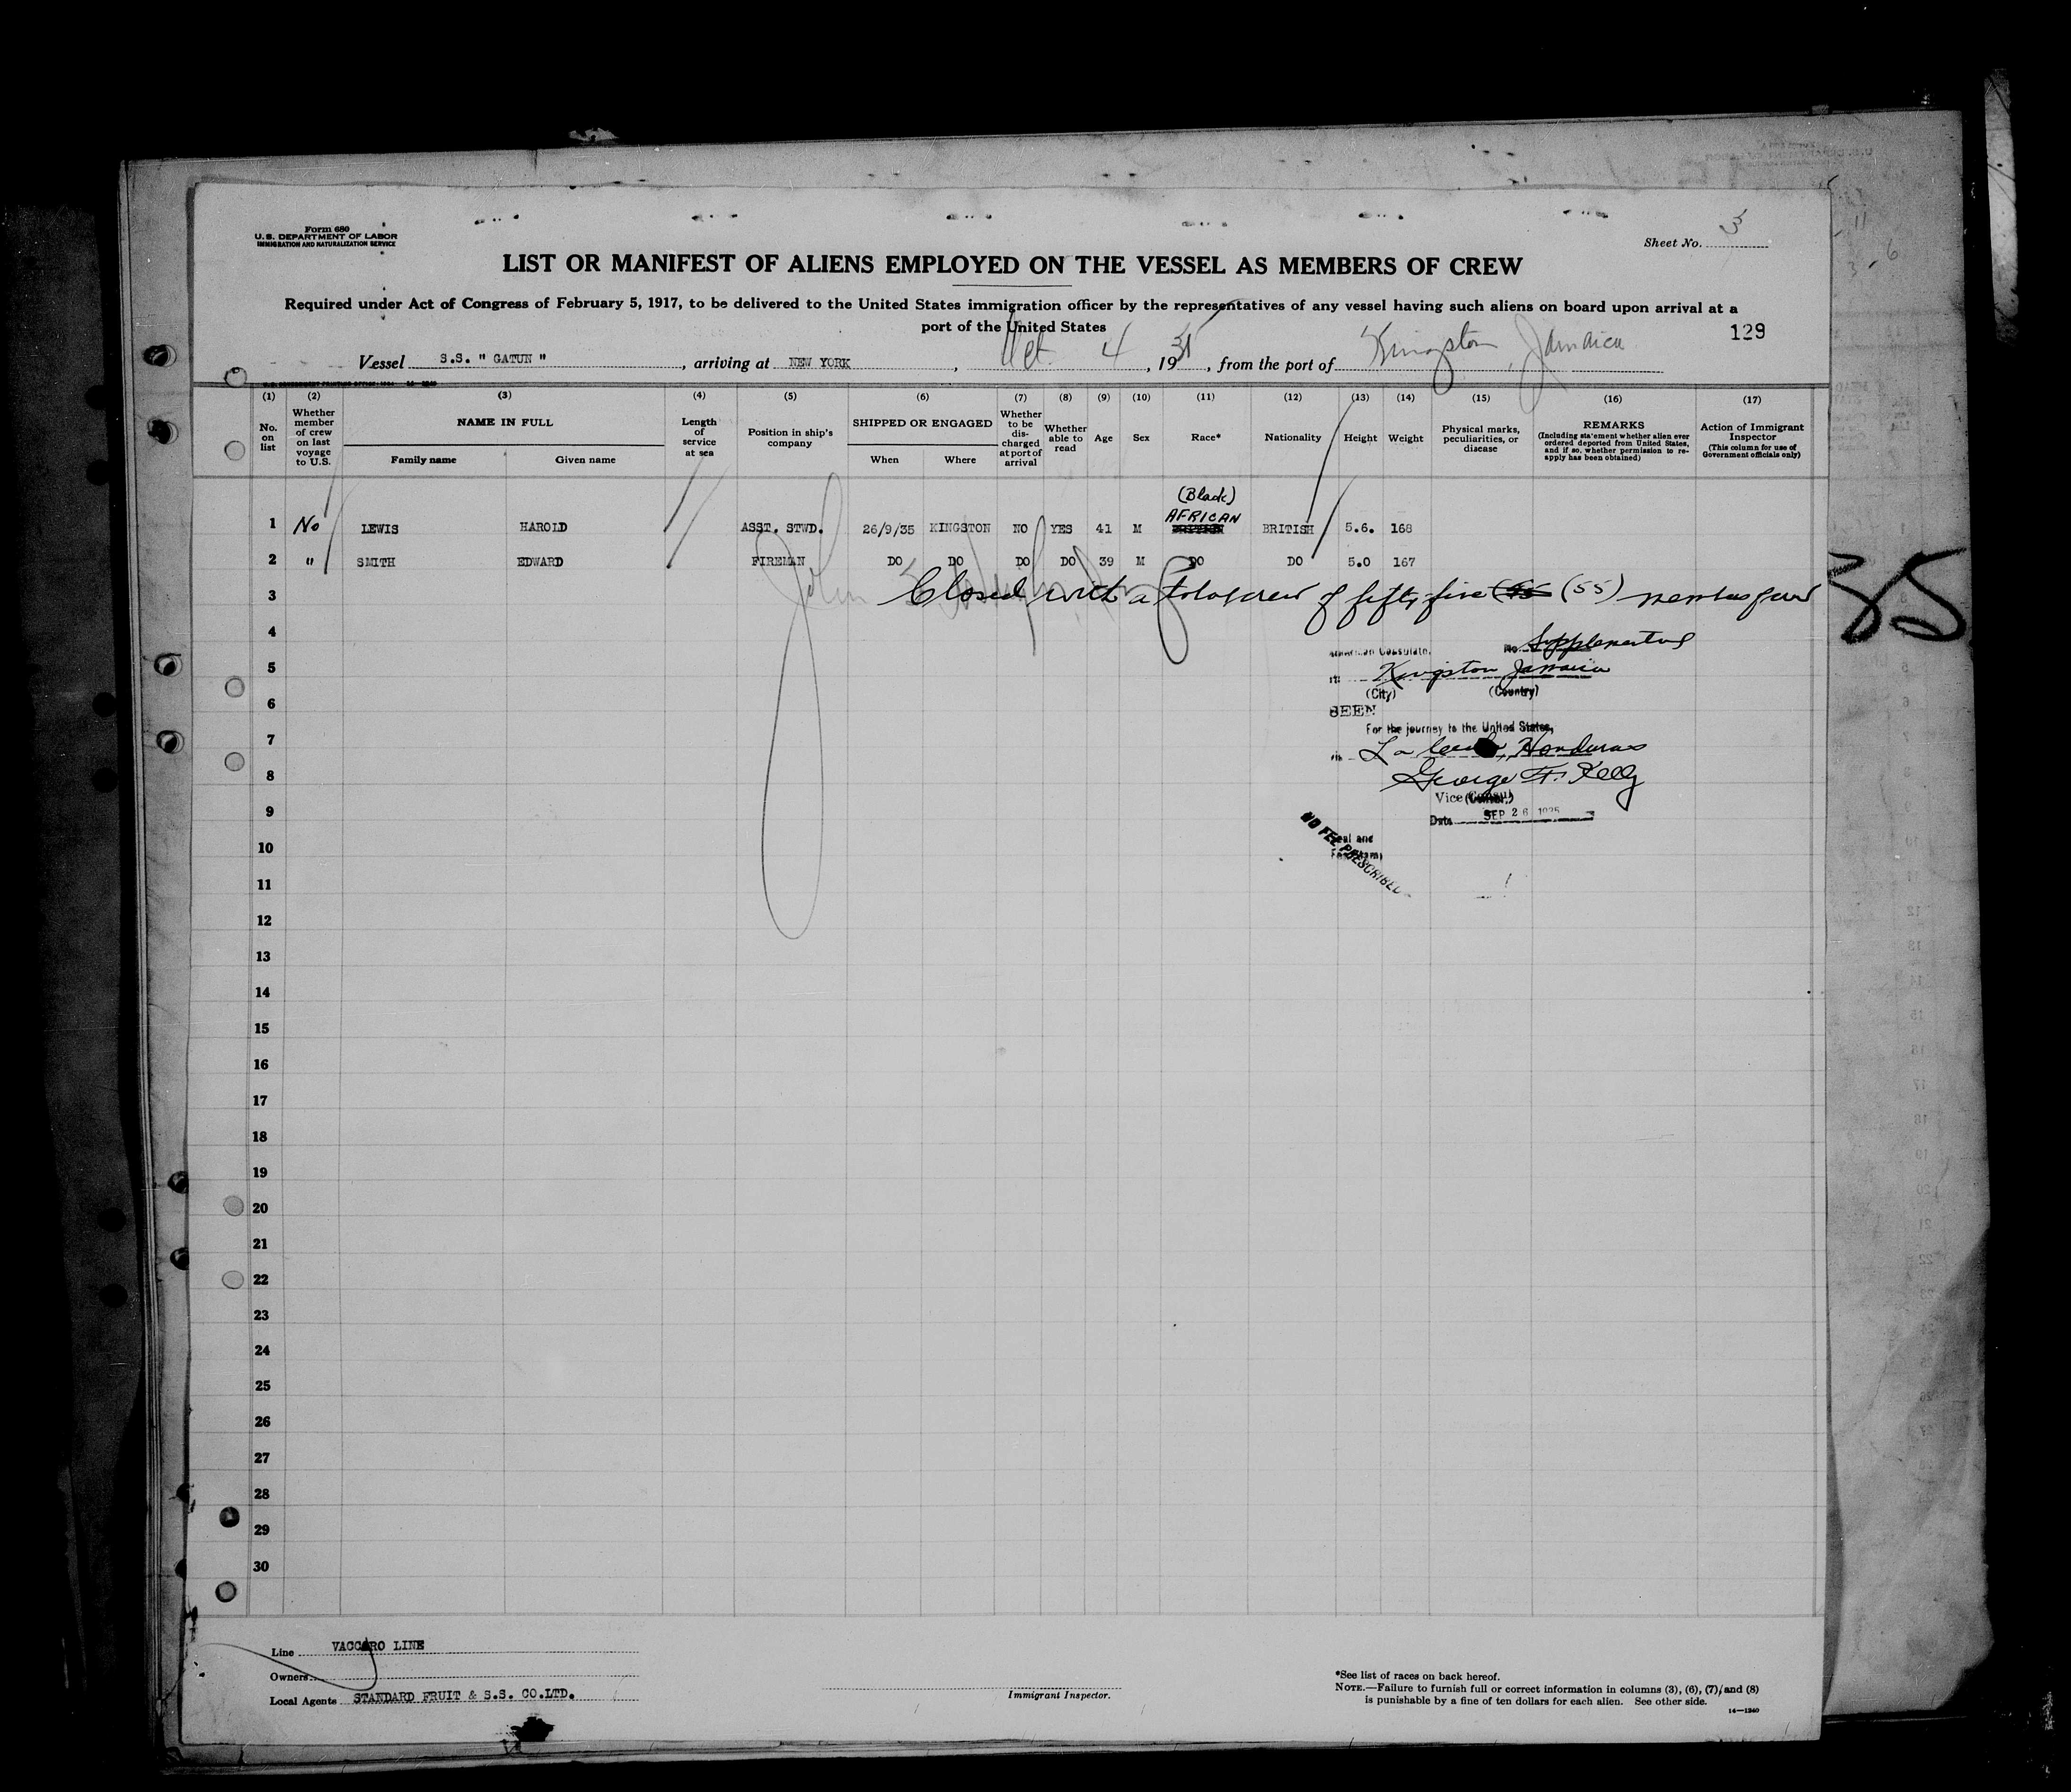 Form 680
U. S. DEPARTMENT OF LABOR
IMMIGRATION AND NATURALIZATION SERVICE
Sheet No. 3
LIST OR MANIFEST OF ALIENS EMPLOYED ON THE VESSEL AS MEMBERS OF CREW
Required under Act of Congress of February 5, 1917, to be delivered to the United States immigration officer by the representatives of any vessel having such aliens on board upon arrival at a
port of the United States
129
Vessel S.S. " GATUN ", arriving at NEW YORK, Oct. 4 1935, from the port of Kingston, Jamaica
(1) (2) (3) (4) (5) (6) (7) (8) (9) (10) (11) (12) (13) (14) (15) (16) (17)
No. on list
Whether member of crew on last voyage to U.S.
NAME IN FULL
Family name
Given name
Length of service at sea
Position in ship's company
SHIPPED OR ENGAGED
When
Where
Whether to be discharged at port of arrival
Whether able to read
Age
Sex
Race*
Nationality
Height
Weight
Physical marks, peculiarities, or disease
REMARKS
(Including statement whether alien ever ordered deported from United States, and if so, whether permission to re-apply has been obtained)
Action of Immigrant Inspector
(This column for use of Government officials only)
(Black)
1 No LEWIS HAROLD ASST. STWD. 26/9/35 KINGSTON NO YES 41 M AFRICAN BRITISH 5.6. 168
2 " SMITH EDWARD FIREMAN DO DO DO DO 39 M DO DO 5.0 167
3 Closed with a total crew of fifty five (55) members crew
35
4
American Consulate, No. Supplemental
5
Kingston Jamaica
(City) (Country)
6
SEEN
For the journey to the United States,
7
La Ceiba, Honduras
8
George F. Kelly
Vice Consul
9
Date SEP 26 1935
10
NO FEE PRESCRIBED
11
12
13
14
15
16
17
18
19
20
21
22
23
24
25
26
27
28
29
30
Line VACCARO LINE
Owners
Local Agents STANDARD FRUIT & S.S. CO.LTD.
Immigrant Inspector.
*See list of races on back hereof.
NOTE.—Failure to furnish full or correct information in columns (3), (6), (7), and (8)
is punishable by a fine of ten dollars for each alien. See other side.
14—1240